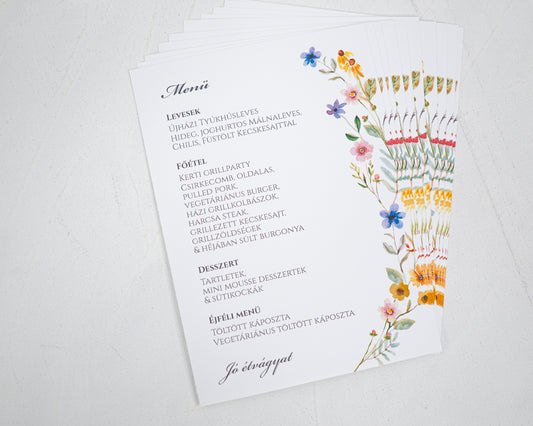 Menü
Levesek
Újházi Tyúkhúsleves
Hideg, joghurtos Málnaleves,
Chilis, Füstölt Kecskesajttal
Főétel
Kerti grillparty
Csirkecomb, oldalas,
pulled pork,
vegetáriánus burger,
házi grillkolbászok,
harcsa steak,
grillezett kecskesajt,
grillzöldségek
& héjában sült burgonya
Desszert
Tartletek,
mini mousse desszertek
& sütikockák
Éjféli menü
Töltött káposzta
Vegetáriánus töltött káposzta
Jó étvágyat